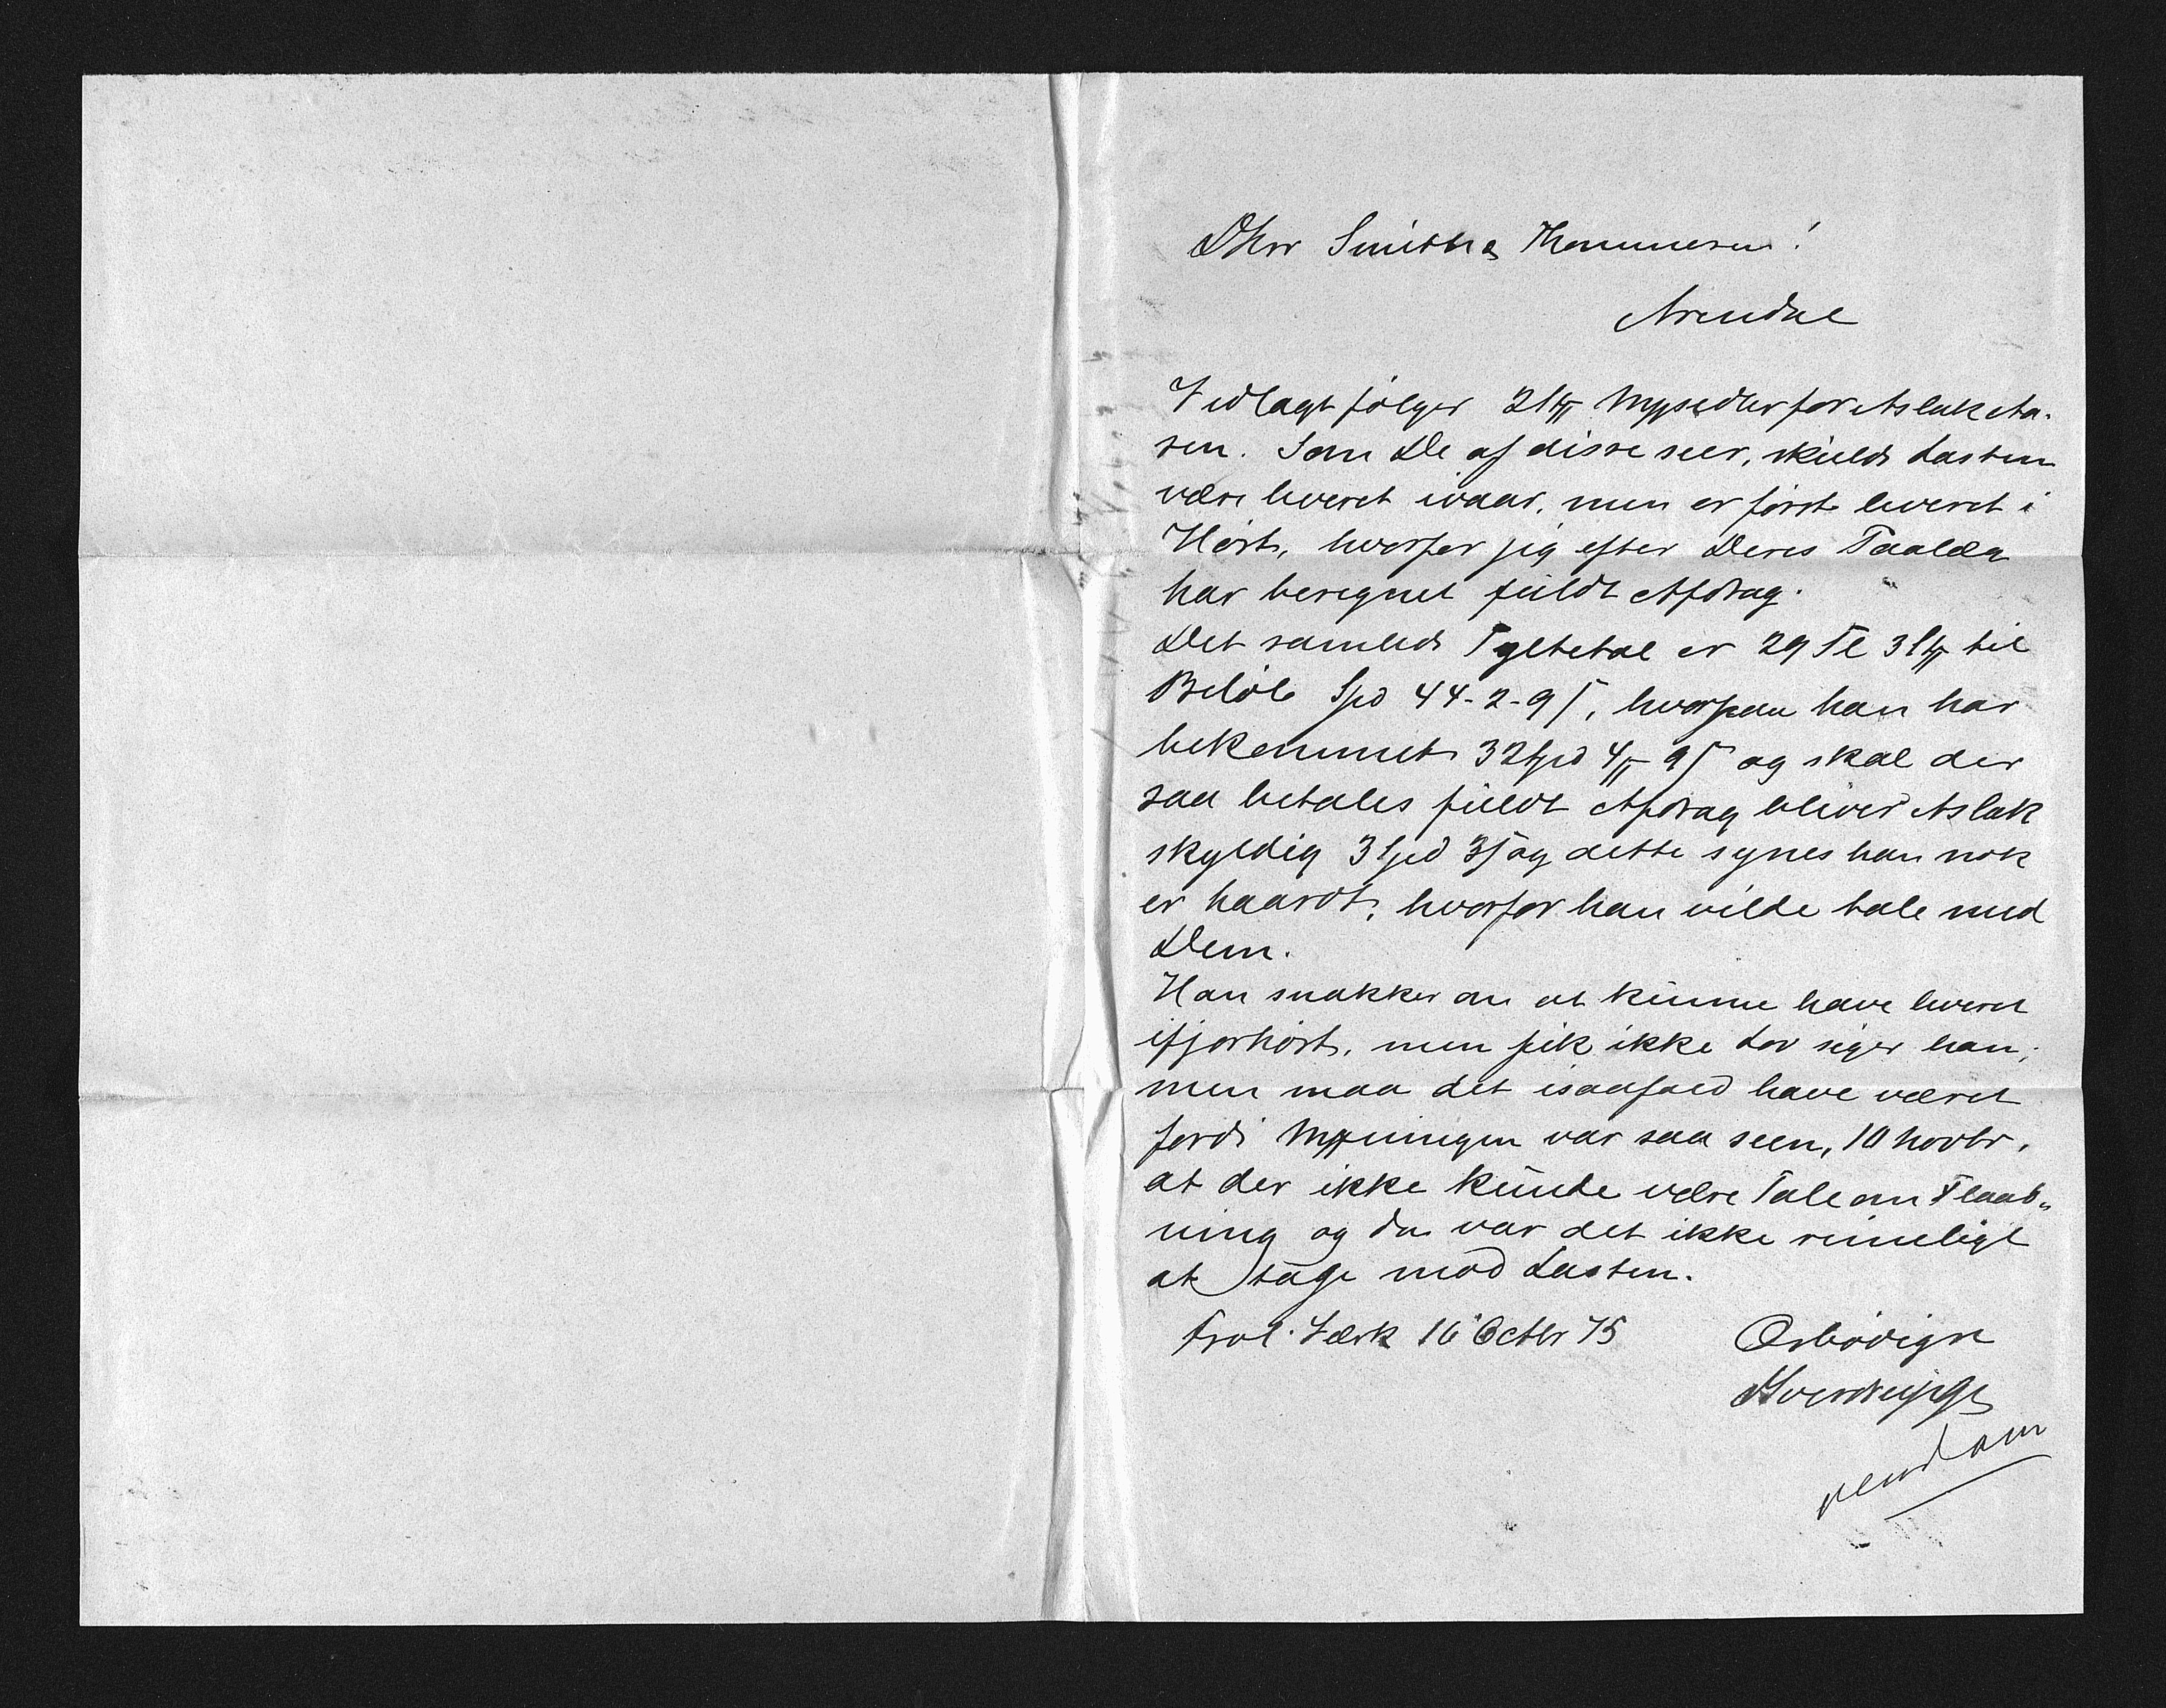 DHrr Smith & Thommesen!
Arendal
Vedlagt følger 2 Stk Mypsedler for Aslak Aa-
sen. Som De af disse seer, skulde Lasten
være leveret ivaar, men er først leveret i
Høst, hvorfor jeg efter Deres Paalæg
har beregnet fuldt Afdrag.
Det samlede Tyltetal er 29 Tl 3 Stk til
Beløb Spd 44-2-9 s, hvorpaa han har
bekommet 32 Spd 4 9 s og skal der
saa betales fuldt Afdrag bliver Aslak
skyldig 3 Spd 3 s og dette synes han nok
er haardt, hvorfor han vilde tale med
Dem.
Han snakker om at kunne have leveret
ifjorhøst, men fik ikke Lov siger han;
men maa det isaafald have været
fordi Mypningen var saa seen, 10 Novbr,
at der ikke kunde være Tale om Flaab-
ning og da var det ikke rimeligt
at tage mod Lasten.
Frol. Værk 16 Octbr 75
Ærbødigst